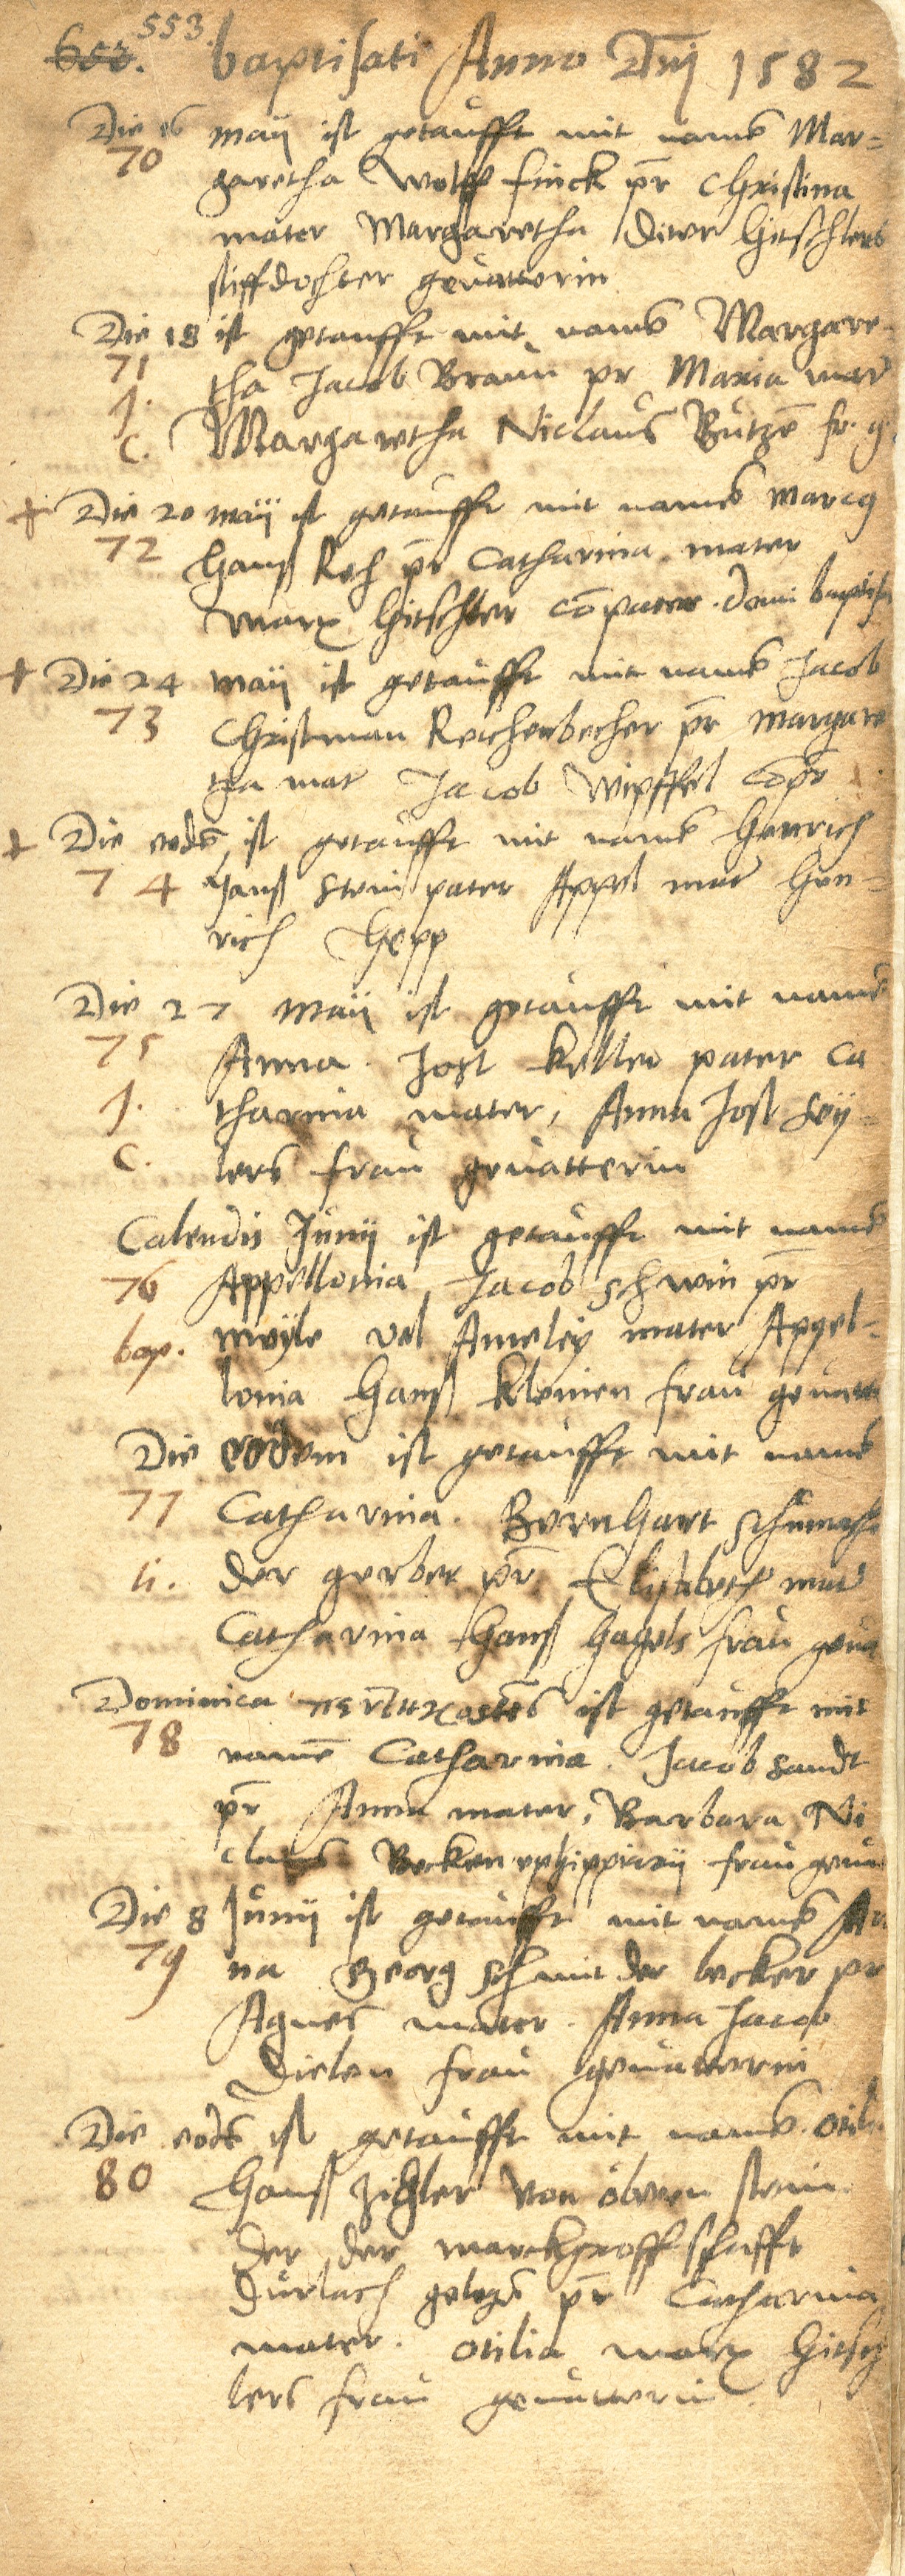 553.
653. baptisati Anno Dnj 1582
Die 16 maÿ ist getaufft mit namē Mar-
70 garetha Wolff finck pr Christina
mater Margaretha Diter Hitschlers
stiffdochter geuatterin
Die 18 ist getaufft mit namē Margare-
71 tha Jacob Braun pr Maria mat
J. C. Margaretha Niclaus Butzē fr. g.
+ Die 20 maÿ ist getaufft mit namē Marcq
72 Hanß Koch pr Catharina mater
Marx Hitschler cōpater domi baptisa
+ Die 24 maÿ ist getaufft mit namē Jacob
73 Christman Reichenbecher pr Margare
tha mat Jacob Wipffel cōpr
+ Die eodē ist getaufft mit namē Henrich
74 Hanß Stein pater Appel mat Hen-
rich Hepp
Die 27 Maÿ ist getaufft mit namē
75 Anna. Jost Keller pater Ca
J. tharina mater, Anna Jost Seÿ-
C. lers frau geuatterin
Calendis Junÿ ist getaufft mit namē
76 Appellonia Jacob Schwin pr
bap. meÿle vel Ameleÿ mater Appel-
lonia Hanß Kleinen frau geuatt
Die eodem ist getaufft mit namē
77 Catharina. Bernhart Schumach
li. der gerber pr Elisabeth mat
Catharina Hanß Hagels frau geua
Dominica πεντηκοστῆς ist getaufft mit
78 namē Catharina. Jacob Sandt
pr Anna mater, Barbara Ni
claus Becken ephippiarÿ frau geua
Die 8 Junÿ ist getaufft mit namē An
79 na Georg Schmit der becker pr
Agnes mater. Anna Jacob
Dielen frau geuatterin
Die eodē ist getaufft mit namē. Otili
80 Hanß Zigler von öbern stein
der der marckgroffschafft
Durlach gelegē pr Catharina
mater. Otilia Marx Hitsch
lers frau geuatterin.